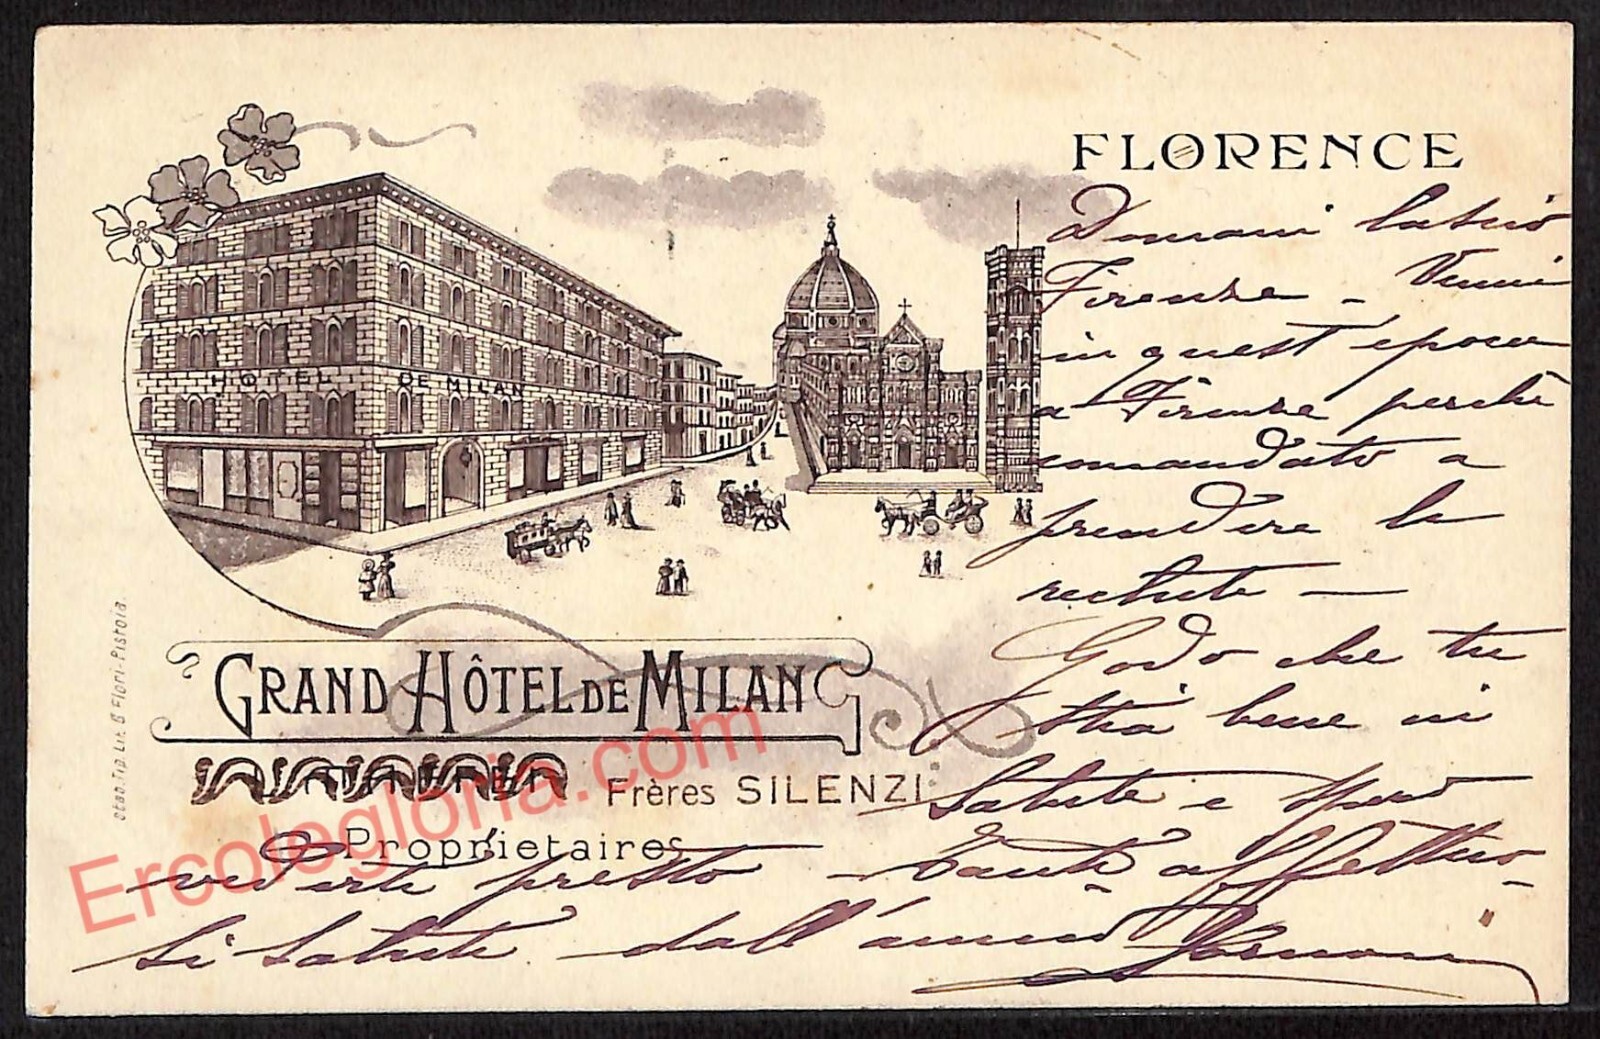 FLORENCE
Domani lascio
Firenze - Venni
in quest'epoca
a Firenze perchè
comandato a
prendere le
reclute —
Godo che tu
stia bene in
salute e spero
vederti presto - Tanti affettuo-
si saluti dall'amico
HOTEL DE MILAN
GRAND HÔTEL DE MILAN
Frères SILENZI
Proprietaires
Stab. Tip. Lit. G. Flori-Pistoia.
Ercolegloria.com